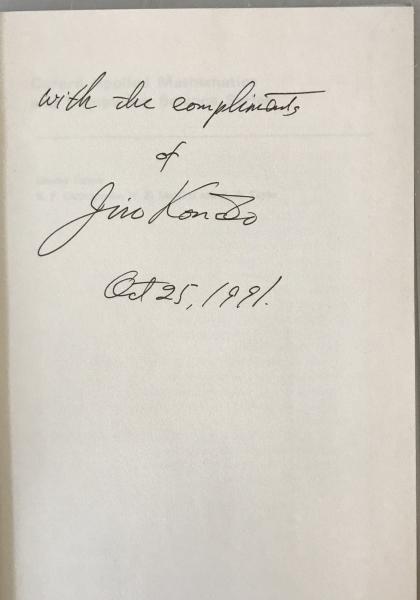 with the compliments
of
Jiro Kondo
Oct 25, 1991.